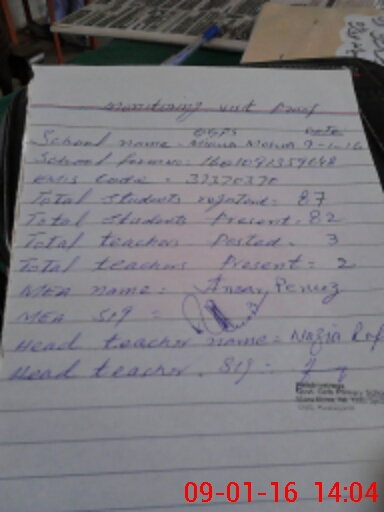 Monitoring visit Proof
GGPS Date
School name = Mohra 9-1-16
School = 1601091359648
EMIS Code = 37370370
Total students = 87
Total students Present = 82
Total teachers Posted = 3
Total teachers Present = 2
MEA name = Ansar Pervez
MEA sig =
Head teacher name = Nazia
Head teacher. Sig =
Govt. Girls Primary
09-01-16 14:04